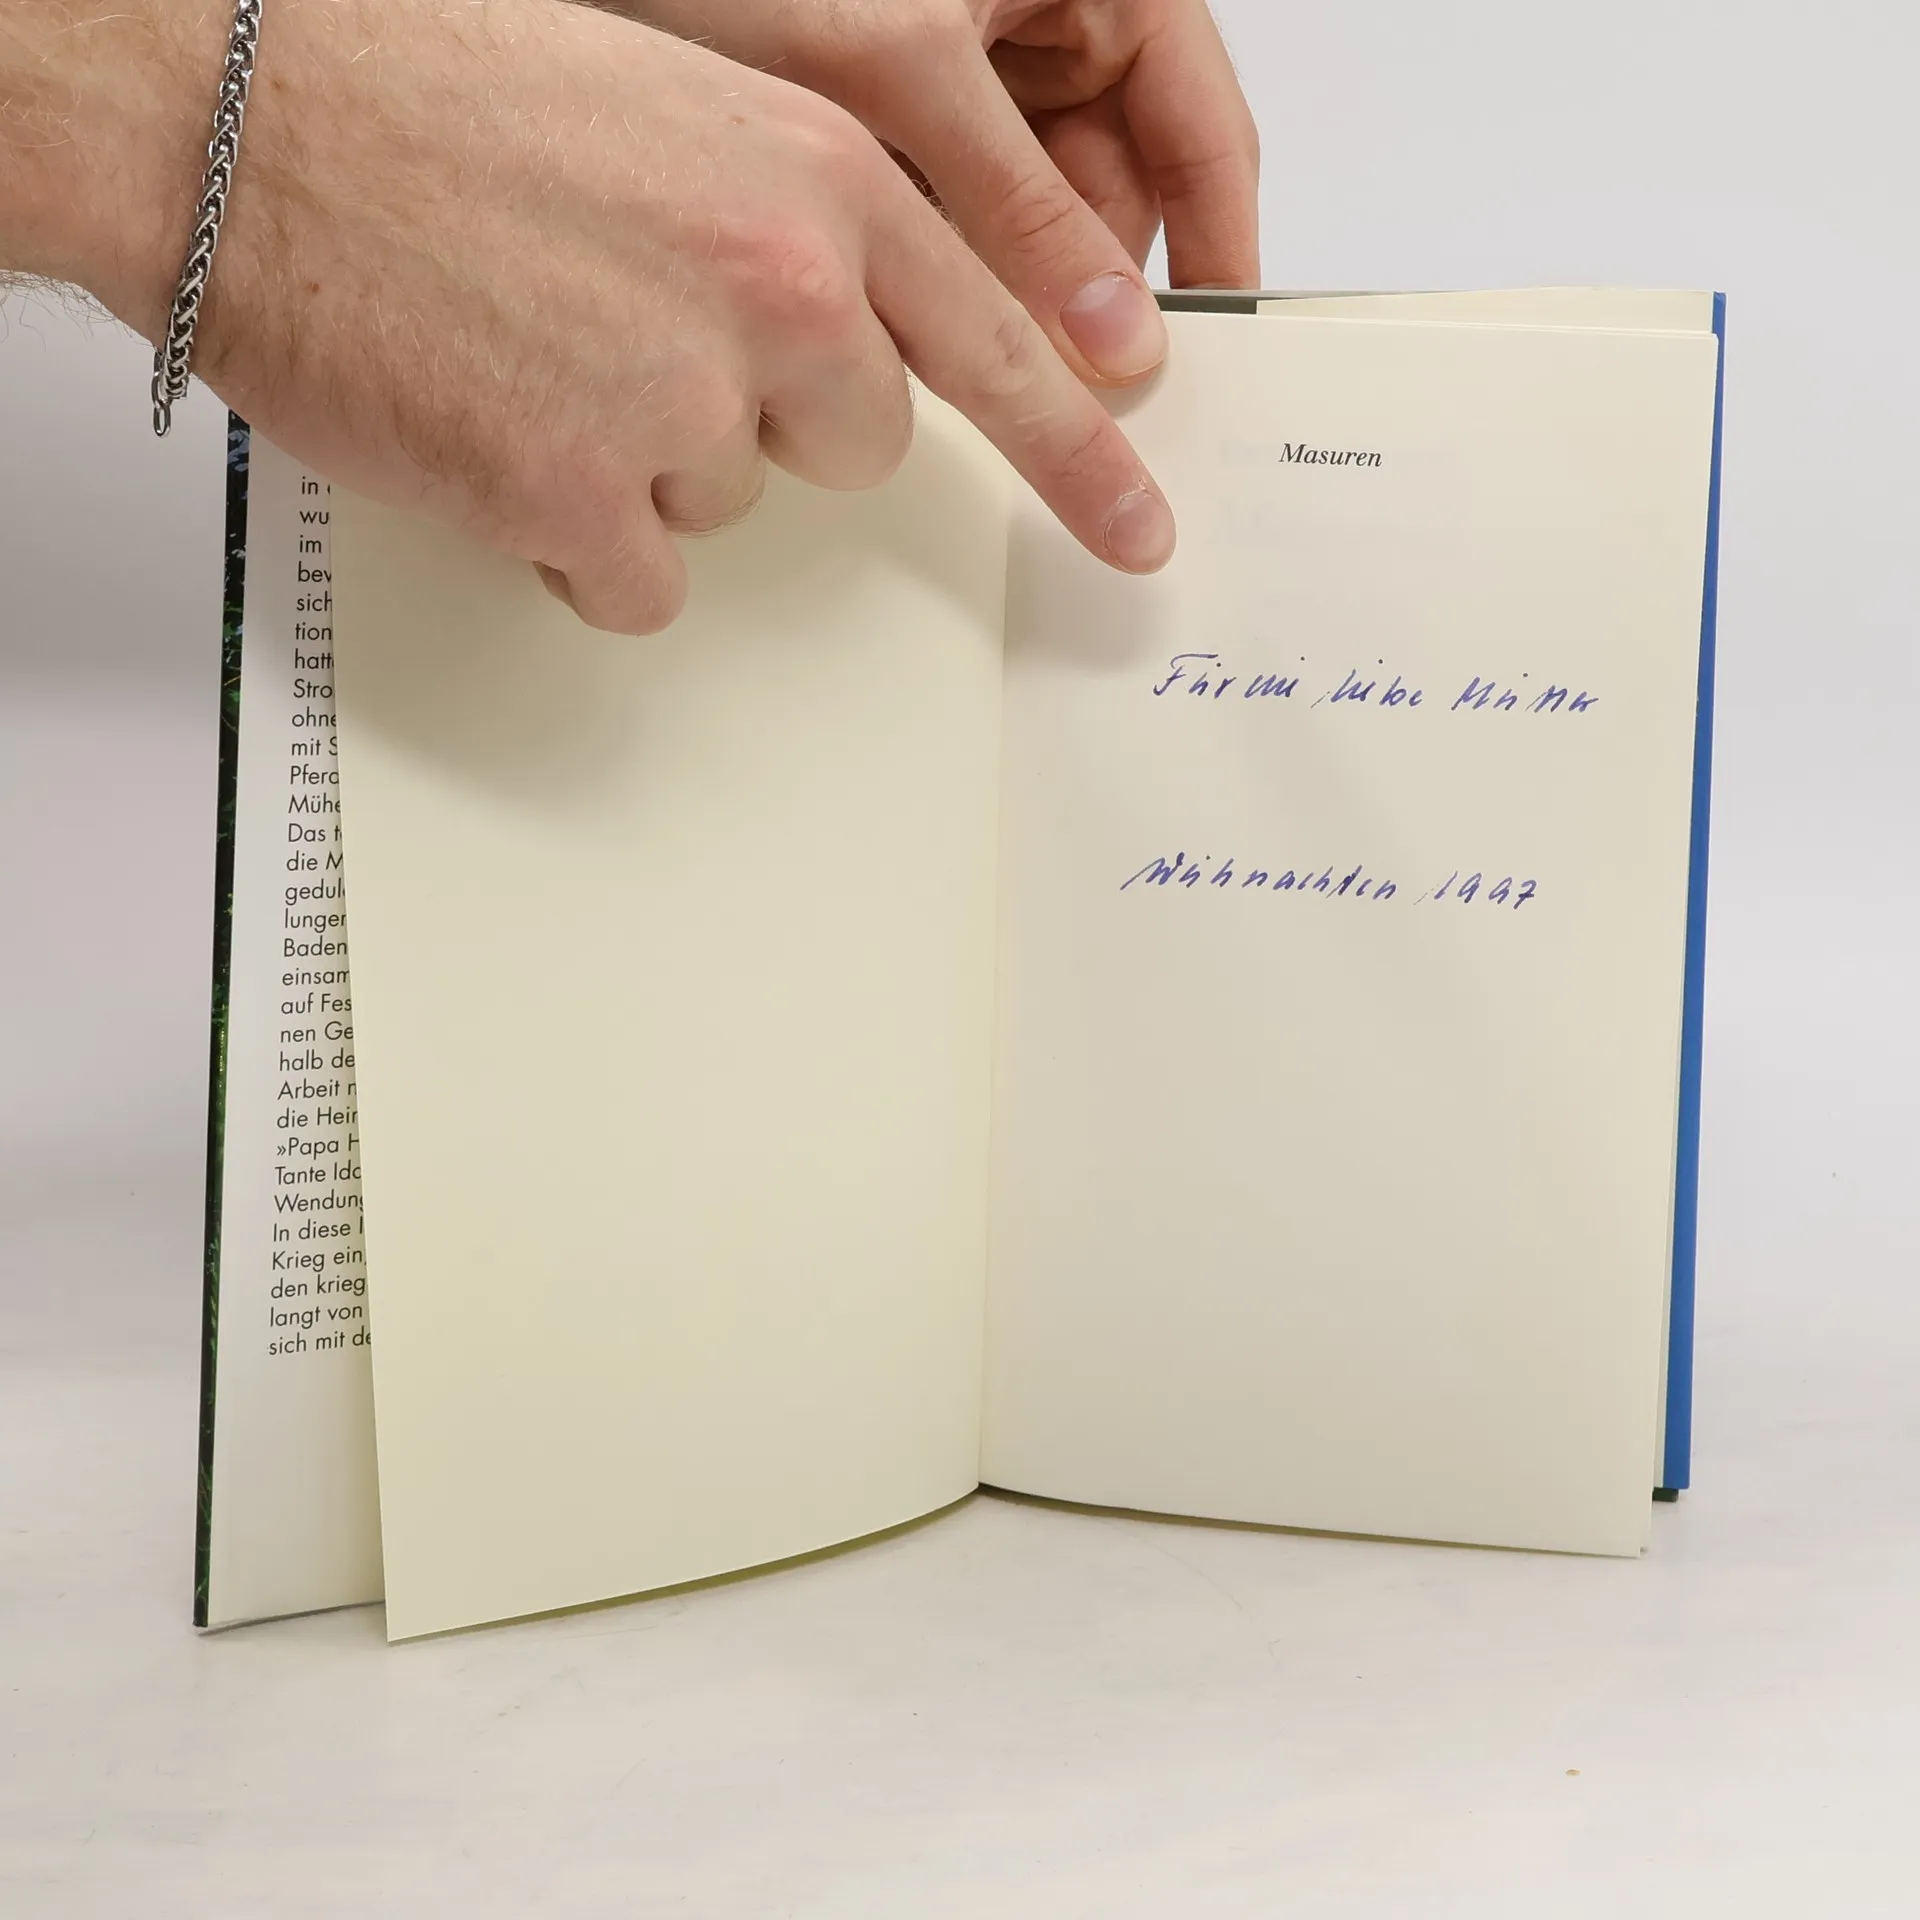 in
wu
im
bev
sich
tion
hatt
Stro
ohne
mit S
Pferd
Mühe
Das t
die M
gedul
lunger
Baden
einsam
auf Fes
nen Ge
halb de
Arbeit n
die Heim
»Papa H
Tante Ida
Wendung
In diese
Krieg ein,
den krieg
langt von
sich mit de
Masuren
Für die liebe Mutter
Weihnachten 1997